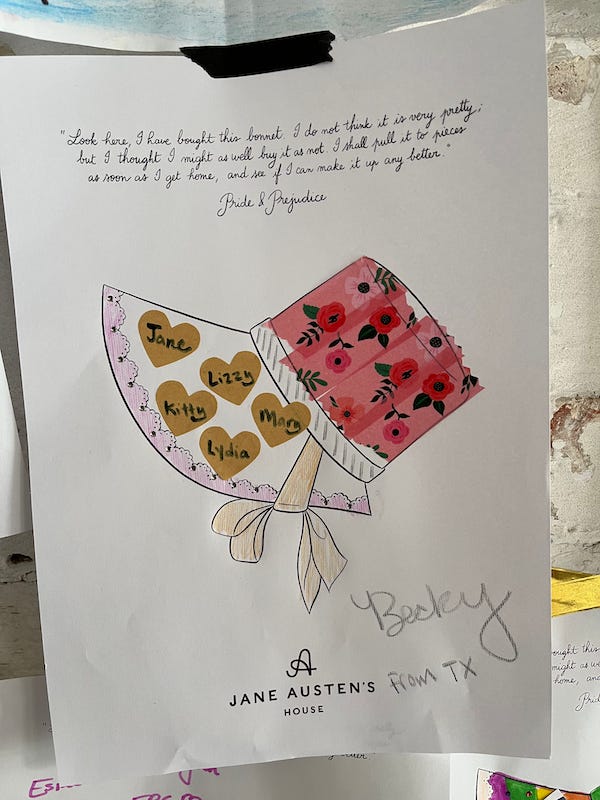 "Look here, I have bought this bonnet. I do not think it is very pretty;
but I thought I might as well buy it as not. I shall pull it to pieces
as soon as I get home, and see if I can make it up any better."
Pride & Prejudice
Jane
Lizzy
Kitty
Mary
Lydia
Becky
From TX
JANE AUSTEN'S
HOUSE
ought this
might as w
home, and
Prid